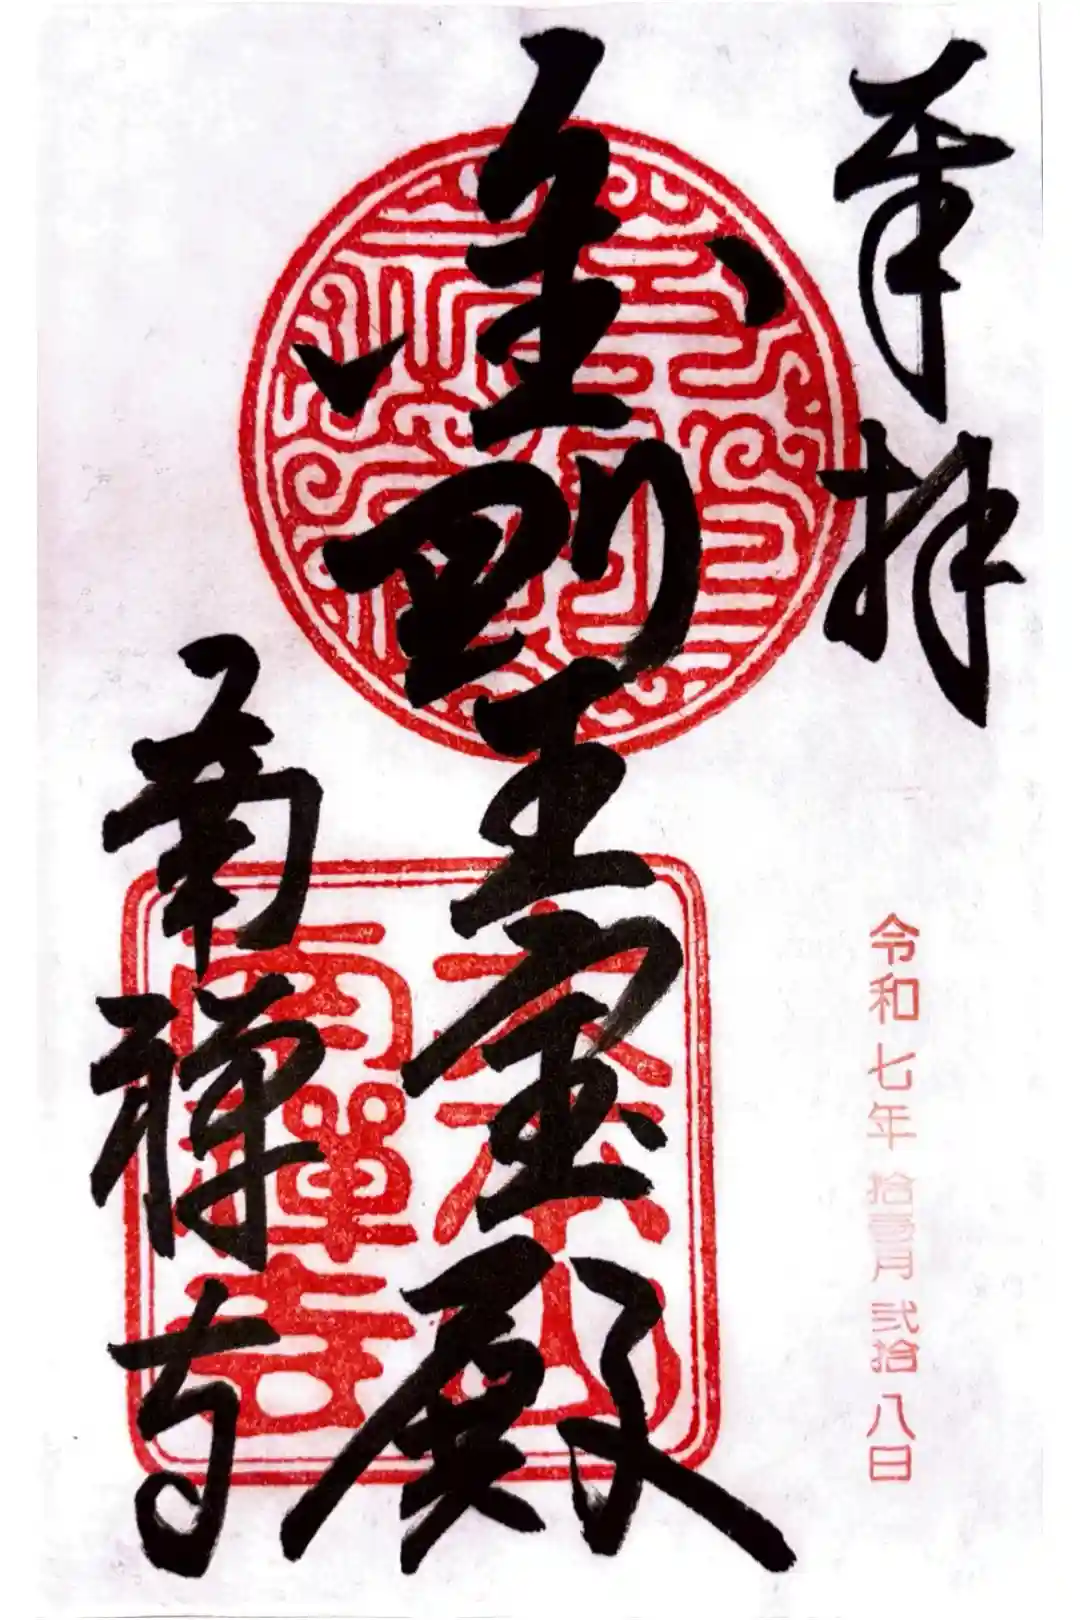 奉拝
令和七年拾壹月弐拾八日
金剛王宝殿
南禅寺
大本山
南禪寺